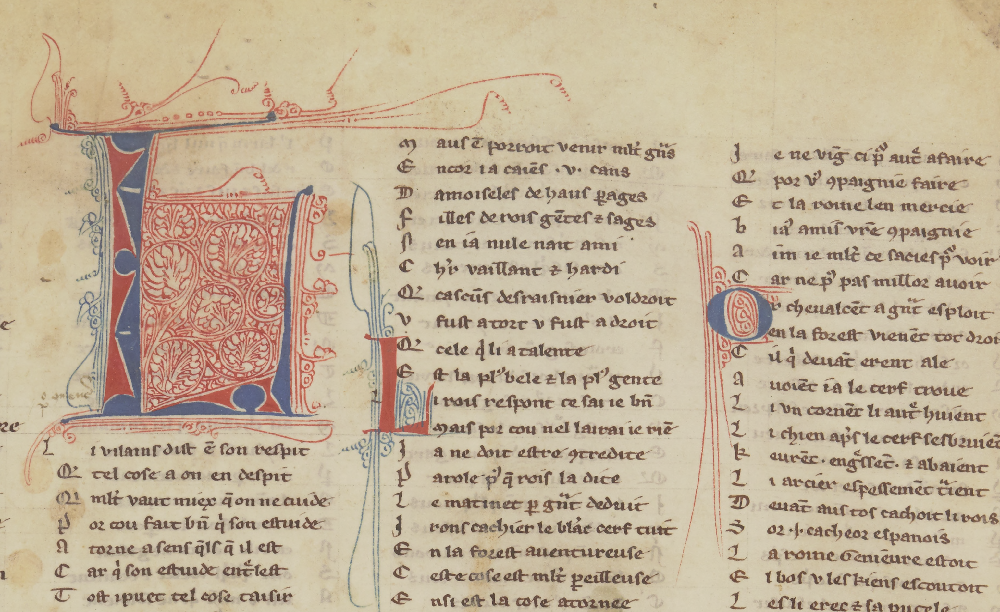 L i vilains dist ē son respit
Q tel cose a on en despit
Q mlt vaut miex q̄ on ne cuide
P or cou fait bn̄ q̇ son estuide
A torne a sens q̄ls q̄ il est
C ar q̇ son estuide entrelest
T ost i puet tel cose taisir
M aus ē porroit venir mlt grās
E ncor ia caiēs .v. cans
D amoiseles de haus parages
F illes de rois gētes ⁊ sages
N en ia nule nait ami
C hr vaillant ⁊ hardi
Q cascūs desraisnier voldroit
V fust a tort v fust a droit
Q cele q̇ li atalente
E st la plꝰ bele ⁊ la plꝰ gente
L i rois respont ce sai ie bn̄
Mais por cou nel lairai ie riē
J a ne doit estre ꝯtredite
P arole pꝰ q̄ rois la dite
L e matinet p grāt deduit
J rons cachier le blāc cerf tuit
E n la forest auentureuse
C este cose est mlt perilleuse
E nsi est la cose atornee
J e ne vig ci pꝰ autre afaire
Q por vꝰ ꝯpaignie faire
E t la roine len mercie
B iaꝰ amis vr̄e ꝯpaignie
A im ie mlt de sacies pꝰ voir
C ar ne pꝰ pas millor auoir
O r cheualcēt a grāt esploit
en la forest vienēt tot droi
C il q̇ deuāt erent ale
A uoient ia le cerf troue
L i vn cornēt li autre huient
L i chien ap͛s le cerf sesbruiē
K eurēt . engrssēt . ⁊ abaient
L i arcier espessemēt traient
D euāt aus tos cachoit li rois
S or .i. cacheor espanois
L a roine Genieure estoit
E l bos v les kiens escoutoit
L es li erec ⁊ sa pucele